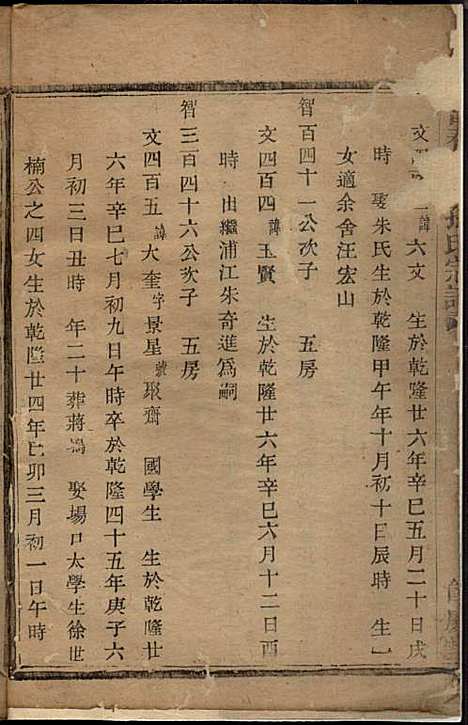 文四百 二 諱六文 生於乾隆廿六年辛巳五月二十日戌
時 娶朱氏生於乾隆甲午年十月初十日辰時 生一
女適余舍汪宏山
智百四十一公次子 五房
文四百四諱玉賢 生於乾隆廿六年辛巳六月十二日酉
時 出繼浦江朱奇進爲嗣
智三百四十六公次子 五房
文四百五諱大奎字景星號聚齋 國學生 生於乾隆廿
六年辛巳七月初九日午時卒於乾隆四十五年庚子六
月初三日丑時 年二十葬蔣塢 娶場口太學生徐世
楠公之四女生於乾隆廿四年己卯三月初一日午時
氏宗譜